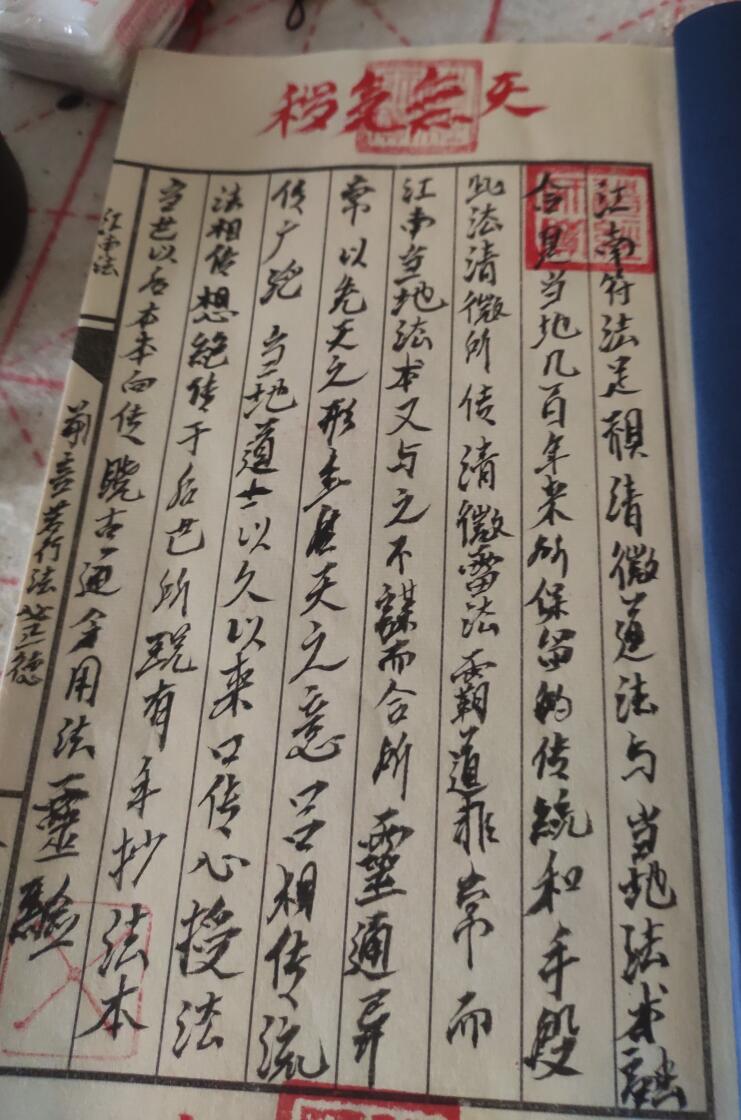 天無忌
江南符法是清微道法与当地法术融
合是当地几百年来所保留的传统和手段
此法清微所传清微雷法霸道非常而
江南当地法本又与之不谋而合所靈通异
常以先天之形天之意口口相传流
传广当地道士以久以来口传心授法
法相传想絕传于后世所現有手抄法本
当世以后本本向传通全用法靈驗
江南法
苦行法